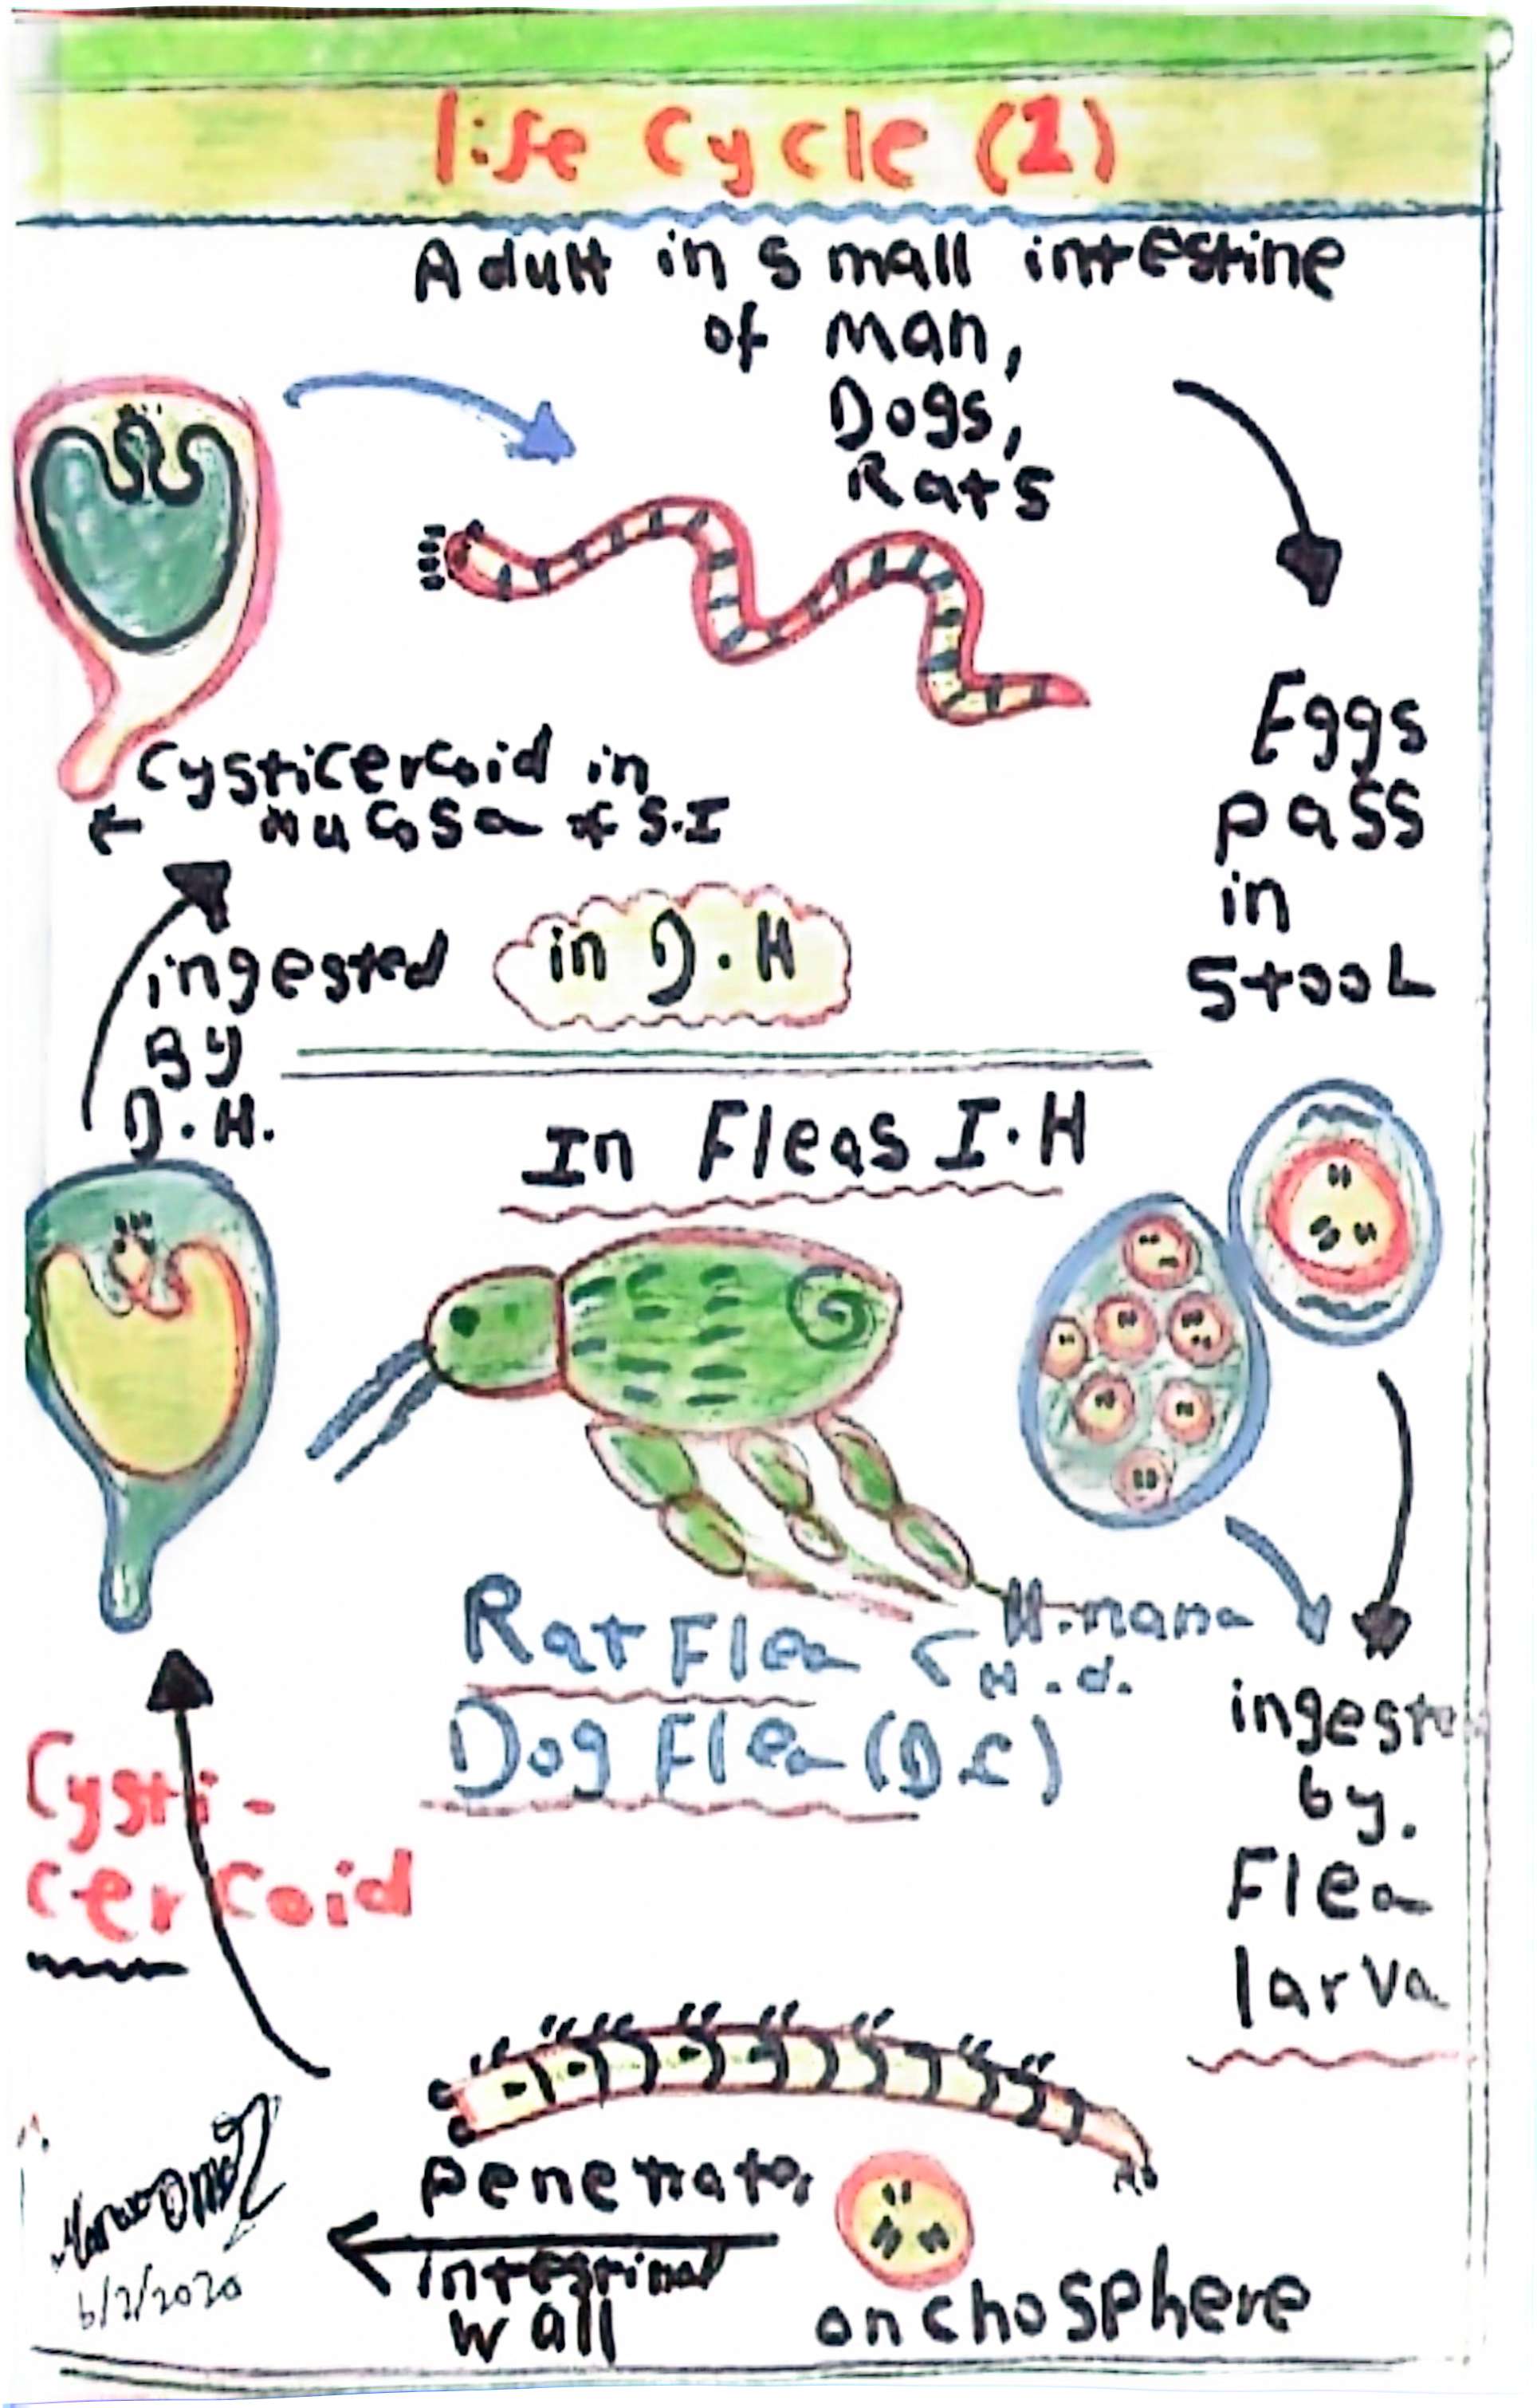 life Cycle (1)
Adult in small intestine
of man,
Dogs,
Rats
Eggs
pass
in
Stool
Cysticercoid in
mucosa of S.I
ingested
By
D.H.
in D.H
In Fleas I.H
Rat Flea
H.nana
H.d.
Dog Flea (D.C)
ingest
by.
Flea
larva
Cysti-
cercoid
Penetrate
intestinal
wall
onchosphere
6/2/2020